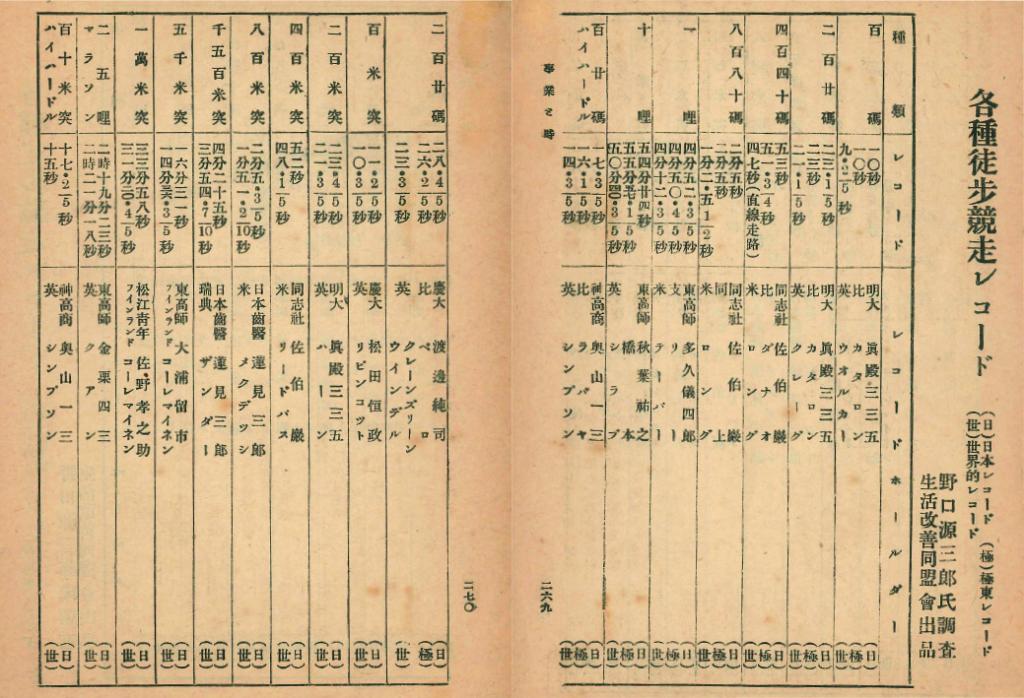 各種徒步競走レコード
(日)日本レコード (極)極東レコード
(世)世界的レコード
野口源三郎氏調査
生活改善同盟會出品
種類 レコード レコードホールダー
百碼
一〇秒 明大 眞殿三三五 (日)
一〇秒 比 カタロン (極)
秒 英 ウオルカー (世)
二百廿碼
二三・1/5秒 明大 眞殿三三五 (日)
二三秒 比 カタロン (極)
二一・1/5秒 英 クレーグ (世)
四百四十碼
五三秒 同志社 佐伯巖 (日)
五一・3/4秒 比 ダナオ (極)
四七秒(直線走路) 米 ロング (世)
八百八十碼
二分五秒 同志社 佐伯巖 (日)
二分五秒 同 上 (極)
一分二・五1/2秒 米 ロング (世)
一哩
四分五二・3/5秒 東高師 多久儀四郎 (日)
四分五〇・4/5秒 支 リー (極)
四分十二・3/5秒 米 テーバー (世)
十哩
五四分廿四秒 東高師 秋葉祐之 (日)
五五分・1/5秒 橋本 (極)
五〇分四〇・3/5秒 英 シラブ (世)
百廿碼ハイハードル
一七・3/5秒 神高商 奥山一三 (日)
一六・1/5秒 比 ラバヤ (極)
一四・3/5秒 英 シンプソン (世)
事業と時
二六九
二七〇
二百廿碼
二八・4/5秒 慶大 渡邊純司 (日)
二六・2/5秒 比 ペロ (極)
二三・3/5秒 英 クレーンズリーン ウインデル (世)
百米突
一一・2/5秒 慶大 松田恒政 (日)
一〇・3/5秒 英 リピンコット (世)
二百米突
二三・4/5秒 明大 眞殿三三五 (日)
二一・3/5秒 英 ハーン (世)
四百米突
五二秒 同志社 佐伯巖 (日)
四八・1/5秒 米 リードパス (世)
八百米突
二分五・3/5秒 日本齒醫 蓮見三郎 (日)
一分五一・2/10秒 米 メクデツシ (世)
千五百米突
四分二十五秒 日本齒醫 蓮見三郎 (日)
三分五四・7/10秒 瑞典 ザンダー (世)
五千米突
一六分三一秒 東高師 大浦留市 (日)
一四分三六・3/5秒 フインランド コーレマイネン (世)
一萬米突
三三分五八秒 松江靑年 佐野孝之助 (日)
三一分二〇・4/5秒 フインランド コーレマイネン (世)
二五哩マラソン
二時十九分二三秒 東高師 金栗四三 (日)
二時二一分一八秒 英 クアン (世)
百十米突ハイハードル
十七・2/5秒 神高商 奥山一三 (日)
十五秒 英 シンプソン (世)